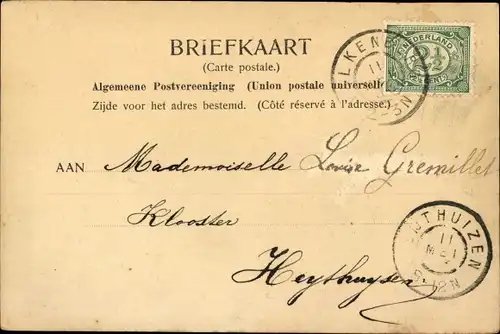 BRIEFKAART
(Carte postale.)
Algemeene Postvereeniging (Union postale universelle
Zijde voor het adres bestemd. (Côté réservé à l'adresse.)
NEDERLAND
2½
LKENB
11
3N
AAN Mademoiselle Louise Gremillet
Klooster
Heythuysen
THUIZEN
11
9-12N